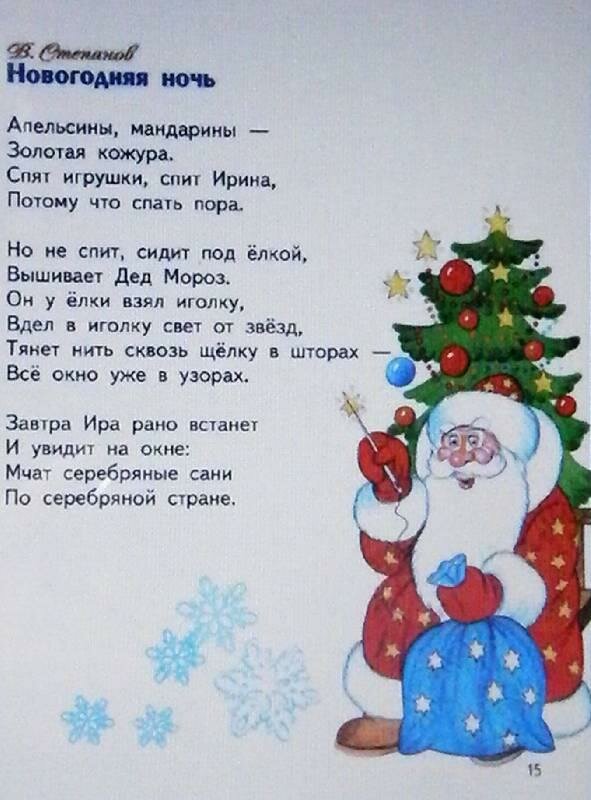 В. Степанов
Новогодняя ночь
Апельсины, мандарины —
Золотая кожура.
Спят игрушки, спит Ирина,
Потому что спать пора.
Но не спит, сидит под ёлкой,
Вышивает Дед Мороз.
Он у ёлки взял иголку,
Вдел в иголку свет от звёзд,
Тянет нить сквозь щёлку в шторах —
Всё окно уже в узорах.
Завтра Ира рано встанет
И увидит на окне:
Мчат серебряные сани
По серебряной стране.
15